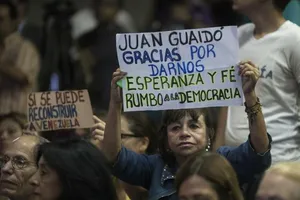 JUAN GUAIDÓ
GRACIAS POR
DARNOS
ESPERANZA Y FÉ
RUMBO A LA DEMOCRACIA
SI SE PUEDE
RECONSTRUIR
VENEZUELA